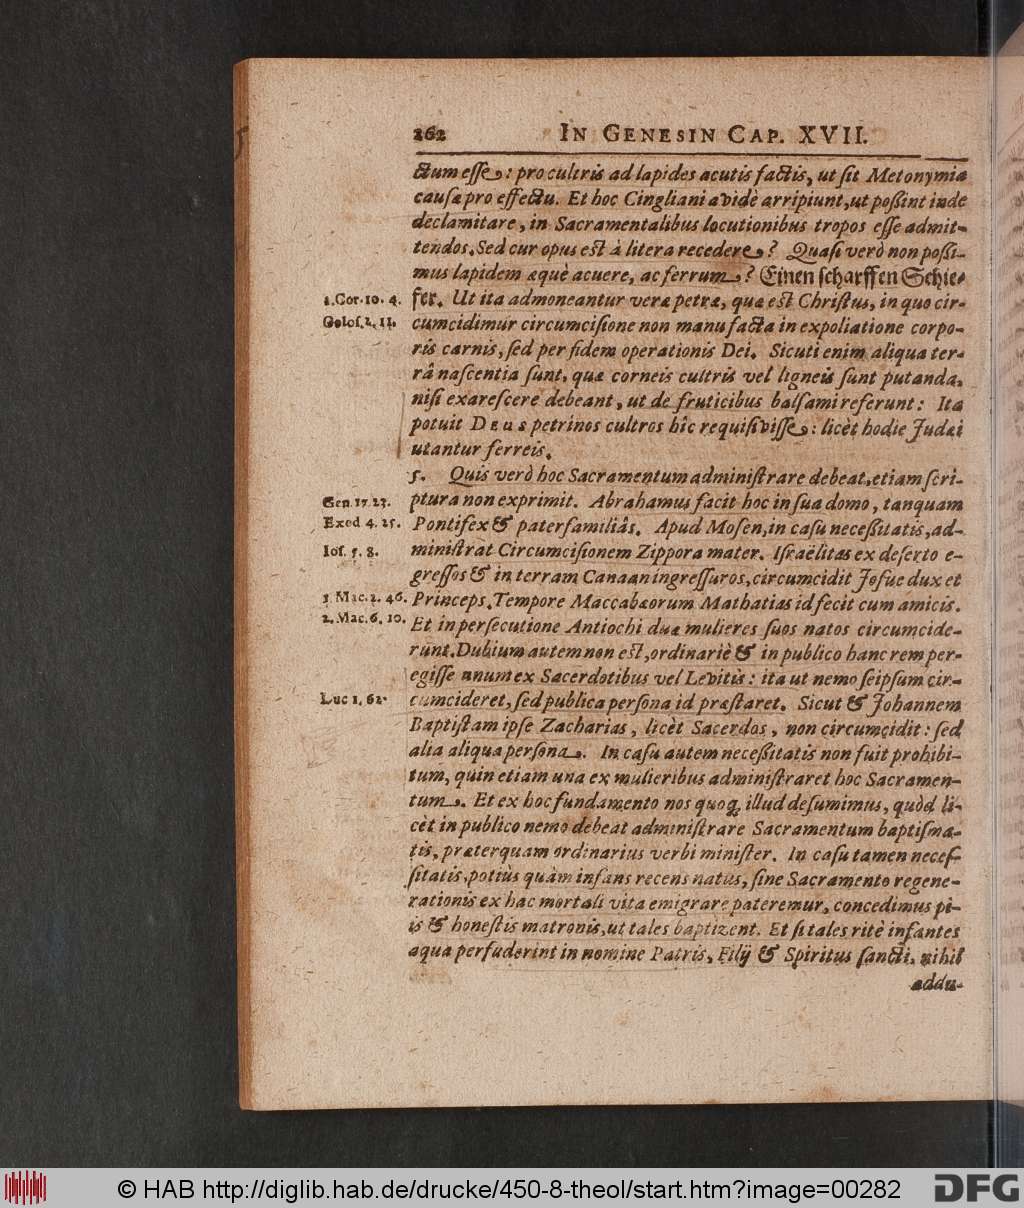 262 IN GENESIN CAP. XVII.
ctum esse: pro cultris ad lapides acutis factis, ut sit Metonymia
causæ pro effectu. Et hoc Cingliani avidè arripiunt, ut possint inde
declamitare, in Sacramentalibus locutionibus tropos esse admit-
tendos. Sed cur opus est à litera recedere? Quasi verò non possi-
mus lapidem æquè acuere, ac ferrum? Einen scharffen Schie-
1. Cor. 10. 4. fer. Ut ita admoneantur veræ petræ, quæ est Christus, in quo cir-
Colos. 2. 11. cumcidimur circumcisione non manu facta in expoliatione corpo-
ris carnis, sed per fidem operationis Dei. Sicuti enim aliqua ter-
râ nascentia sunt, quæ corneis cultris vel ligneis sunt putanda,
nisi exarescere debeant, ut de fruticibus balsami referunt: Ita
potuit DEUS petrinos cultros hîc requisivisse: licèt hodie Judæi
utantur ferreis.
5. Quis verò hoc Sacramentum administrare debeat, etiam scri-
Gen. 17. 23. ptura non exprimit. Abrahamus facit hoc in sua domo, tanquam
Exod 4. 25. Pontifex & paterfamiliâs. Apud Mosen, in casu necessitatis, ad-
Ios. 5. 8. ministrat Circumcisionem Zippora mater. Israëlitas ex deserto e-
gressos & in terram Canaan ingressuros, circumcidit Josue dux et
1. Mac. 2. 46. Princeps. Tempore Maccabæorum Mathatias id fecit cum amicis.
2. Mac. 6. 10. Et in persecutione Antiochi duæ mulieres suos natos circumcide-
runt. Dubium autem non est, ordinariè & in publico hanc rem per-
egisse unum ex Sacerdotibus vel Levitis: ita ut nemo seipsum cir-
Luc 1. 62. cumcideret, sed publica persona id præstaret. Sicut & Johannem
Baptistam ipse Zacharias, licèt Sacerdos, non circumcidit: sed
alia aliqua persona. In casu autem necessitatis non fuit prohibi-
tum, quin etiam una ex mulieribus administraret hoc Sacramen-
tum. Et ex hoc fundamento nos quoq; illud desumimus, quòd li-
cèt in publico nemo debeat administrare Sacramentum baptisma-
tis, præterquam ordinarius verbi minister. In casu tamen neces-
sitatis, potiùs quàm infans recens natus, sine Sacramento regene-
rationis ex hac mortali vita emigrare pateremur, concedimus pi-
is & honestis matronis, ut tales baptizent. Et si tales ritè infantes
aqua perfuderint in nomine Patris, Filij & Spiritus sancti, nihil
addu-
© HAB http://diglib.hab.de/drucke/450-8-theol/start.htm?image=00282 DFG